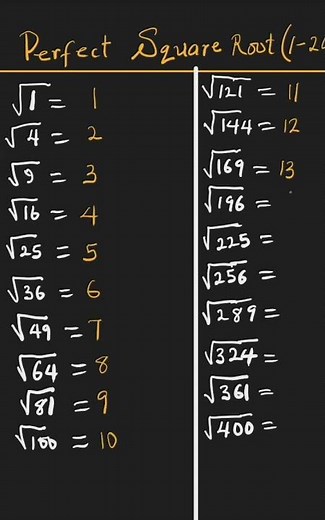 Perfect Square Root (1-20
√1 = 1
√4 = 2
√9 = 3
√16 = 4
√25 = 5
√36 = 6
√49 = 7
√64 = 8
√81 = 9
√100 = 10
√121 = 11
√144 = 12
√169 = 13
√196 =
√225 =
√256 =
√289 =
√324 =
√361 =
√400 =